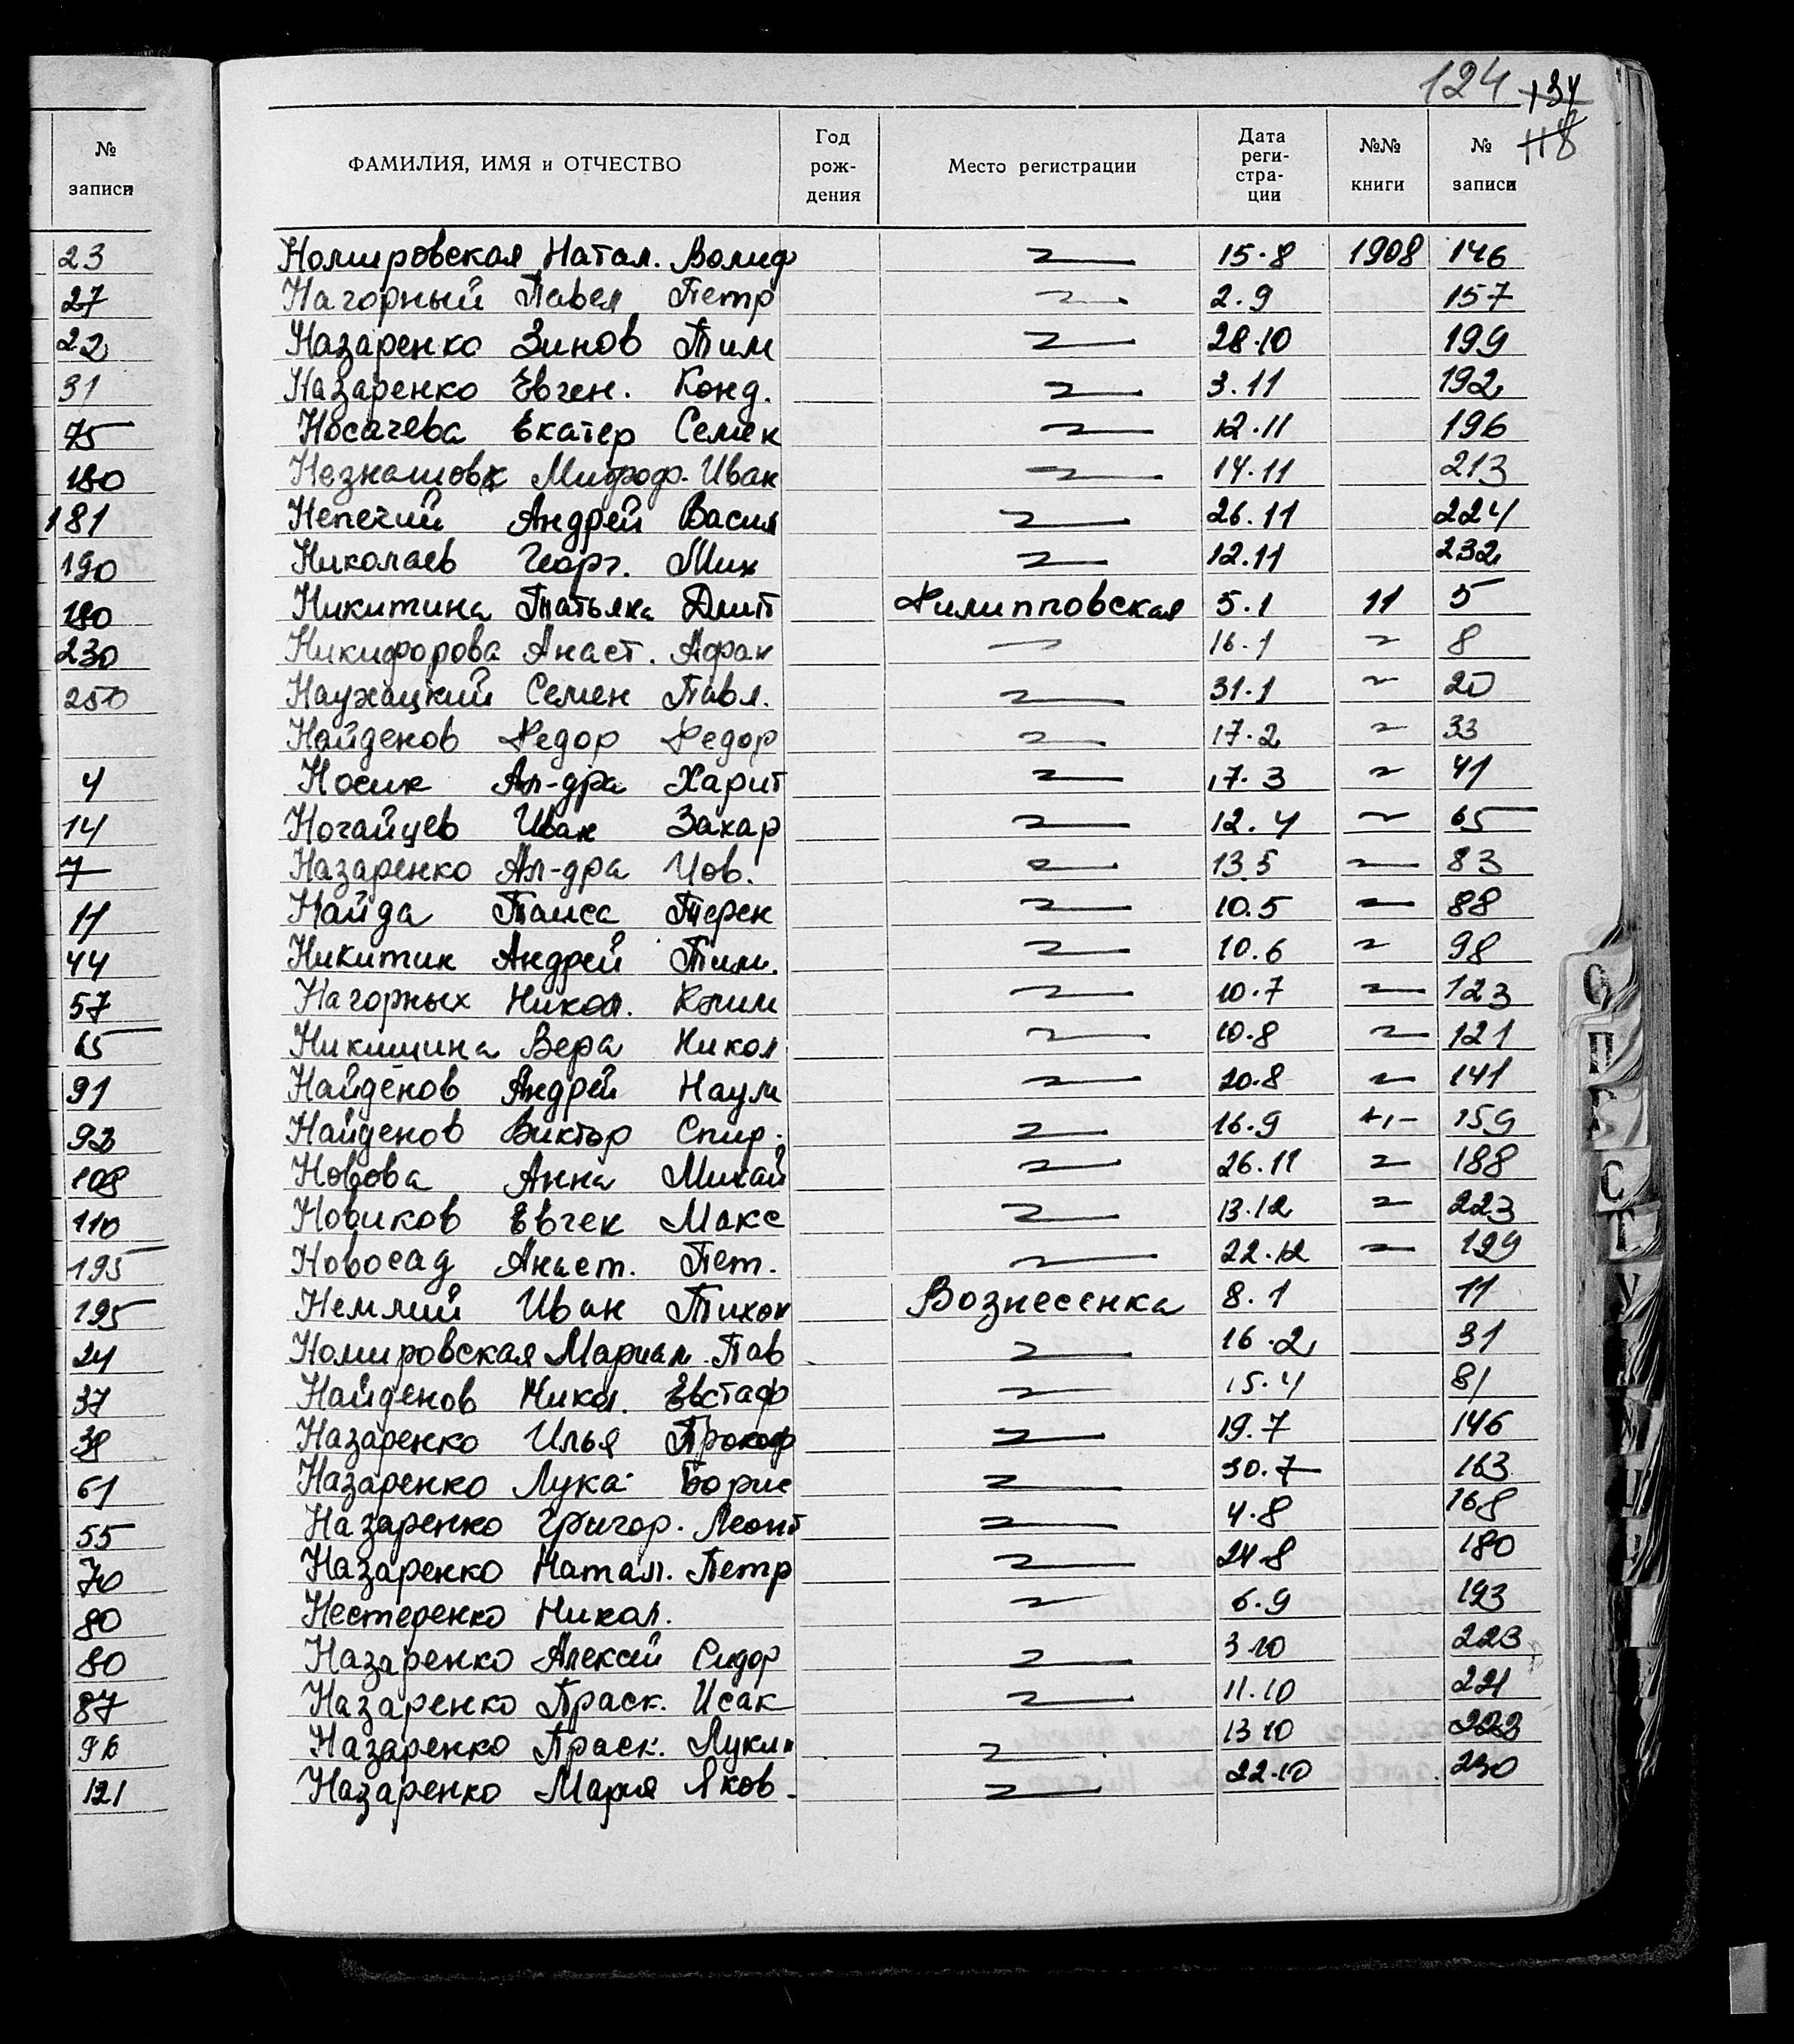 124 134
118
№ записи
ФАМИЛИЯ, ИМЯ и ОТЧЕСТВО Год рож- дения Место регистрации Дата реги- стра- ции №№ книги № записи
23 Номировская Натал. 〃 15.8 1908 146
27 Нагорный Павел Петр 〃 2.9 157
22 Назаренко Зинов Тим 〃 28.10 199
31 Назаренко Евген. Конд. 〃 3.11 192
75 Носачева Екатер Семен 〃 12.11 196
180 Митроф. Иван 〃 14.11 213
181 Непечий Андрей Васил 〃 26.11 224
190 Николаев Георг. Мих 〃 12.11 232
180 Никитина Татьяна Дмит Филипповская 5.1 11 5
230 Никифорова Анаст. Афан 〃 16.1 〃 8
250 Семен Павл. 〃 31.1 〃 20
Найденов Федор Федор 〃 17.2 〃 33
4 Носик Ал-дра Харит 〃 17.3 〃 41
14 Ногайцев Иван Захар 〃 12.4 〃 65
7 Назаренко Ал-дра Иов. 〃 13.5 〃 83
11 Найда Таиса Терен 〃 10.5 〃 88
44 Никитин Андрей Тим. 〃 10.6 〃 98
57 Нагорных Никол. Клим 〃 10.7 〃 123
65 Никишина Вера Никол 〃 10.8 〃 121
91 Найденов Андрей Наум 〃 20.8 〃 141
93 Найденов Виктор Спир. 〃 16.9 159
108 Новова Анна Михай 〃 26.11 〃 188
110 Новиков Евген Макс 〃 13.12 〃 223
195 Новосад Анаст. Пет. 〃 22.12 〃 199
195 Немлий Иван Тихон Вознесенка 8.1 11
24 Номировская Мариам. Пав 〃 16.2 31
37 Найденов Никол. Евстаф 〃 15.4 81
38 Назаренко Илья Прокоф 〃 19.7 146
61 Назаренко Лука Борис 〃 30.7 163
55 Назаренко Григор. Леонт 〃 4.8 168
70 Назаренко Натал. Петр 〃 24.8 180
80 Нестеренко Никол. 〃 6.9 193
80 Назаренко Алексей Сидор 〃 3.10 223
87 Назаренко Праск. Исак 〃 11.10 221
96 Назаренко Праск. 〃 13.10 222
121 Назаренко Мария Яков. 〃 22.10 230
О
П
Р
С
Т
У